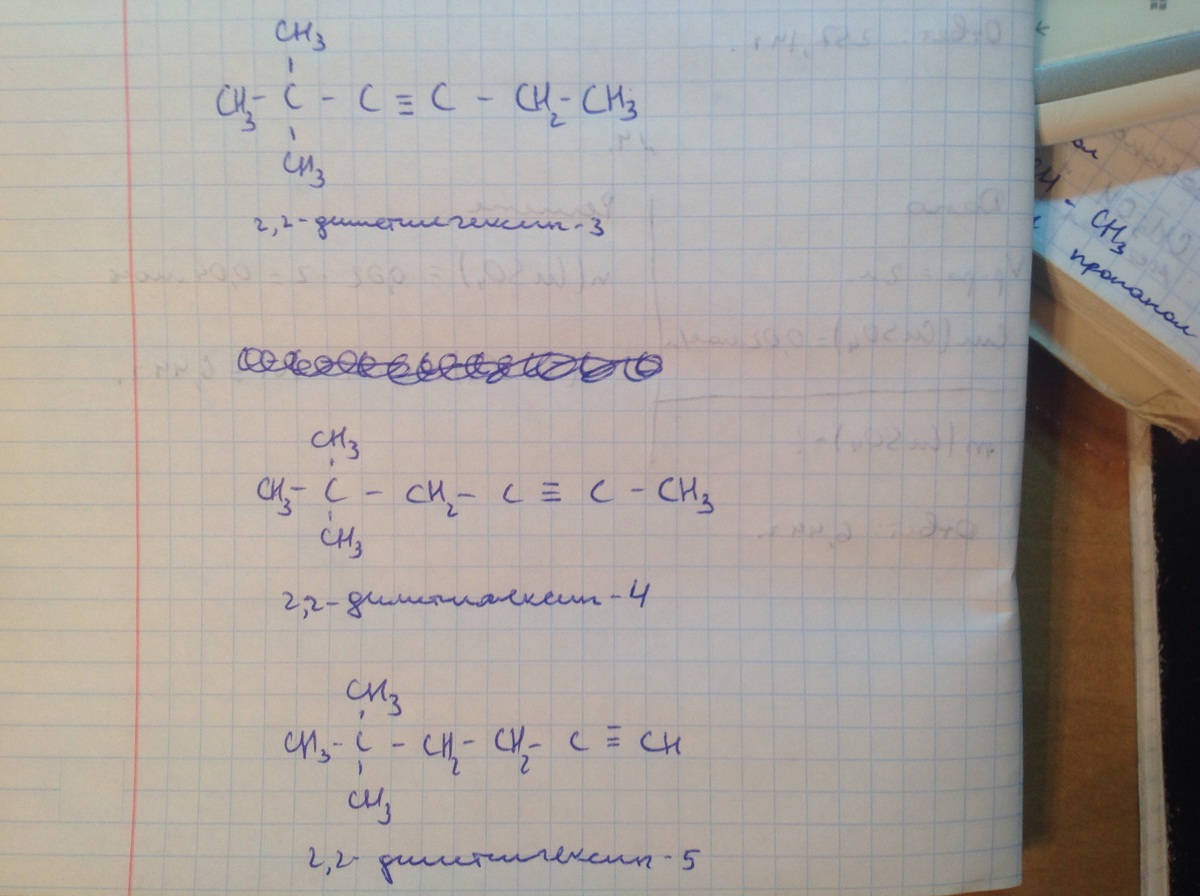 CH3
CH3 - C - C ≡ C - CH2 - CH3
CH3
2,2-диметилгексин-3
CH3
CH3 - C - CH2 - C ≡ C - CH3
CH3
2,2-диметилгексин-4
CH3
CH3 - C - CH2 - CH2 - C ≡ CH
CH3
2,2-диметилгексин-5
- CH3
пропанол